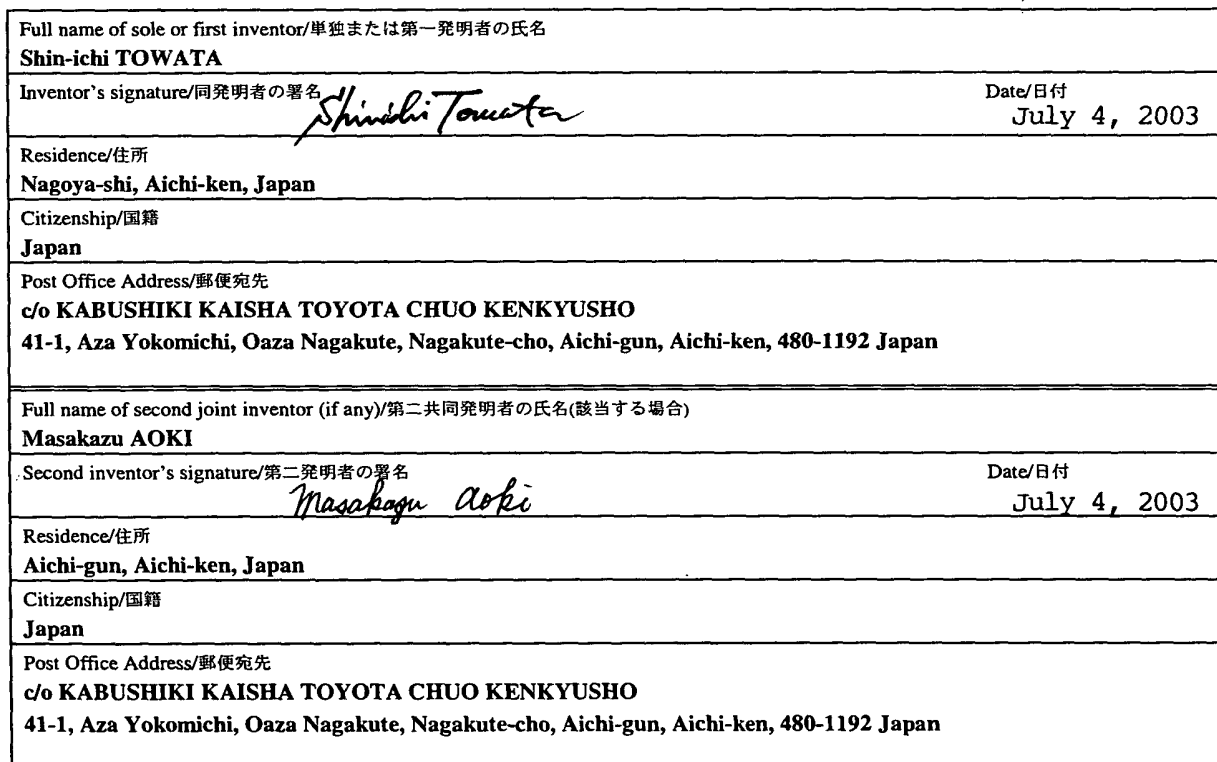 Full name of sole or first inventor/単独または第一発明者の氏名
Shin-ichi TOWATA
Inventor's signature/同発明者の署名
Shinichi Towata
Date/日付
July 4, 2003
Residence/住所
Nagoya-shi, Aichi-ken, Japan
Citizenship/国籍
Japan
Post Office Address/郵便宛先
c/o KABUSHIKI KAISHA TOYOTA CHUO KENKYUSHO
41-1, Aza Yokomichi, Oaza Nagakute, Nagakute-cho, Aichi-gun, Aichi-ken, 480-1192 Japan
Full name of second joint inventor (if any)/第二共同発明者の氏名(該当する場合)
Masakazu AOKI
Second inventor's signature/第二発明者の署名
Masakazu Aoki
Date/日付
July 4, 2003
Residence/住所
Aichi-gun, Aichi-ken, Japan
Citizenship/国籍
Japan
Post Office Address/郵便宛先
c/o KABUSHIKI KAISHA TOYOTA CHUO KENKYUSHO
41-1, Aza Yokomichi, Oaza Nagakute, Nagakute-cho, Aichi-gun, Aichi-ken, 480-1192 Japan